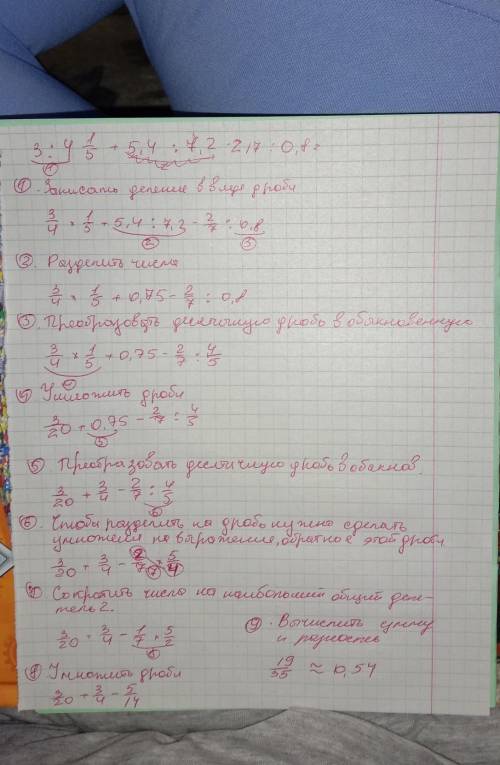 3 : 4 1/5 + 5,4 : 7,2 - 2,17 : 0,8 =
①
① Записать деление в виде дроби
3/4 × 1/5 + 5,4 : 7,2 - 2/7 : 0,8
② ③
② Разделить числа
3/4 × 1/5 + 0,75 - 2/7 : 0,8
③ Преобразовать десятичную дробь в обыкновенную
3/4 × 1/5 + 0,75 - 2/7 : 4/5
④ Умножить дроби
3/20 + 0,75 - 2/7 : 4/5
⑤
⑤ Преобразовать десятичную дробь в обыкнов.
3/20 + 3/4 - 2/7 : 4/5
⑥
⑥ Чтобы разделить на дробь нужно сделать
умножение на выражение, обратное этой дроби
3/20 + 3/4 - 2/7 × 5/4
⑦
⑦ Сократить числа на наибольший общий дели-
тель 2.
3/20 + 3/4 - 1/7 × 5/2
⑧
⑧ Умножить дроби
3/20 + 3/4 - 5/14
⑨ Вычислить сумму
и разность
19/35 ≈ 0,54